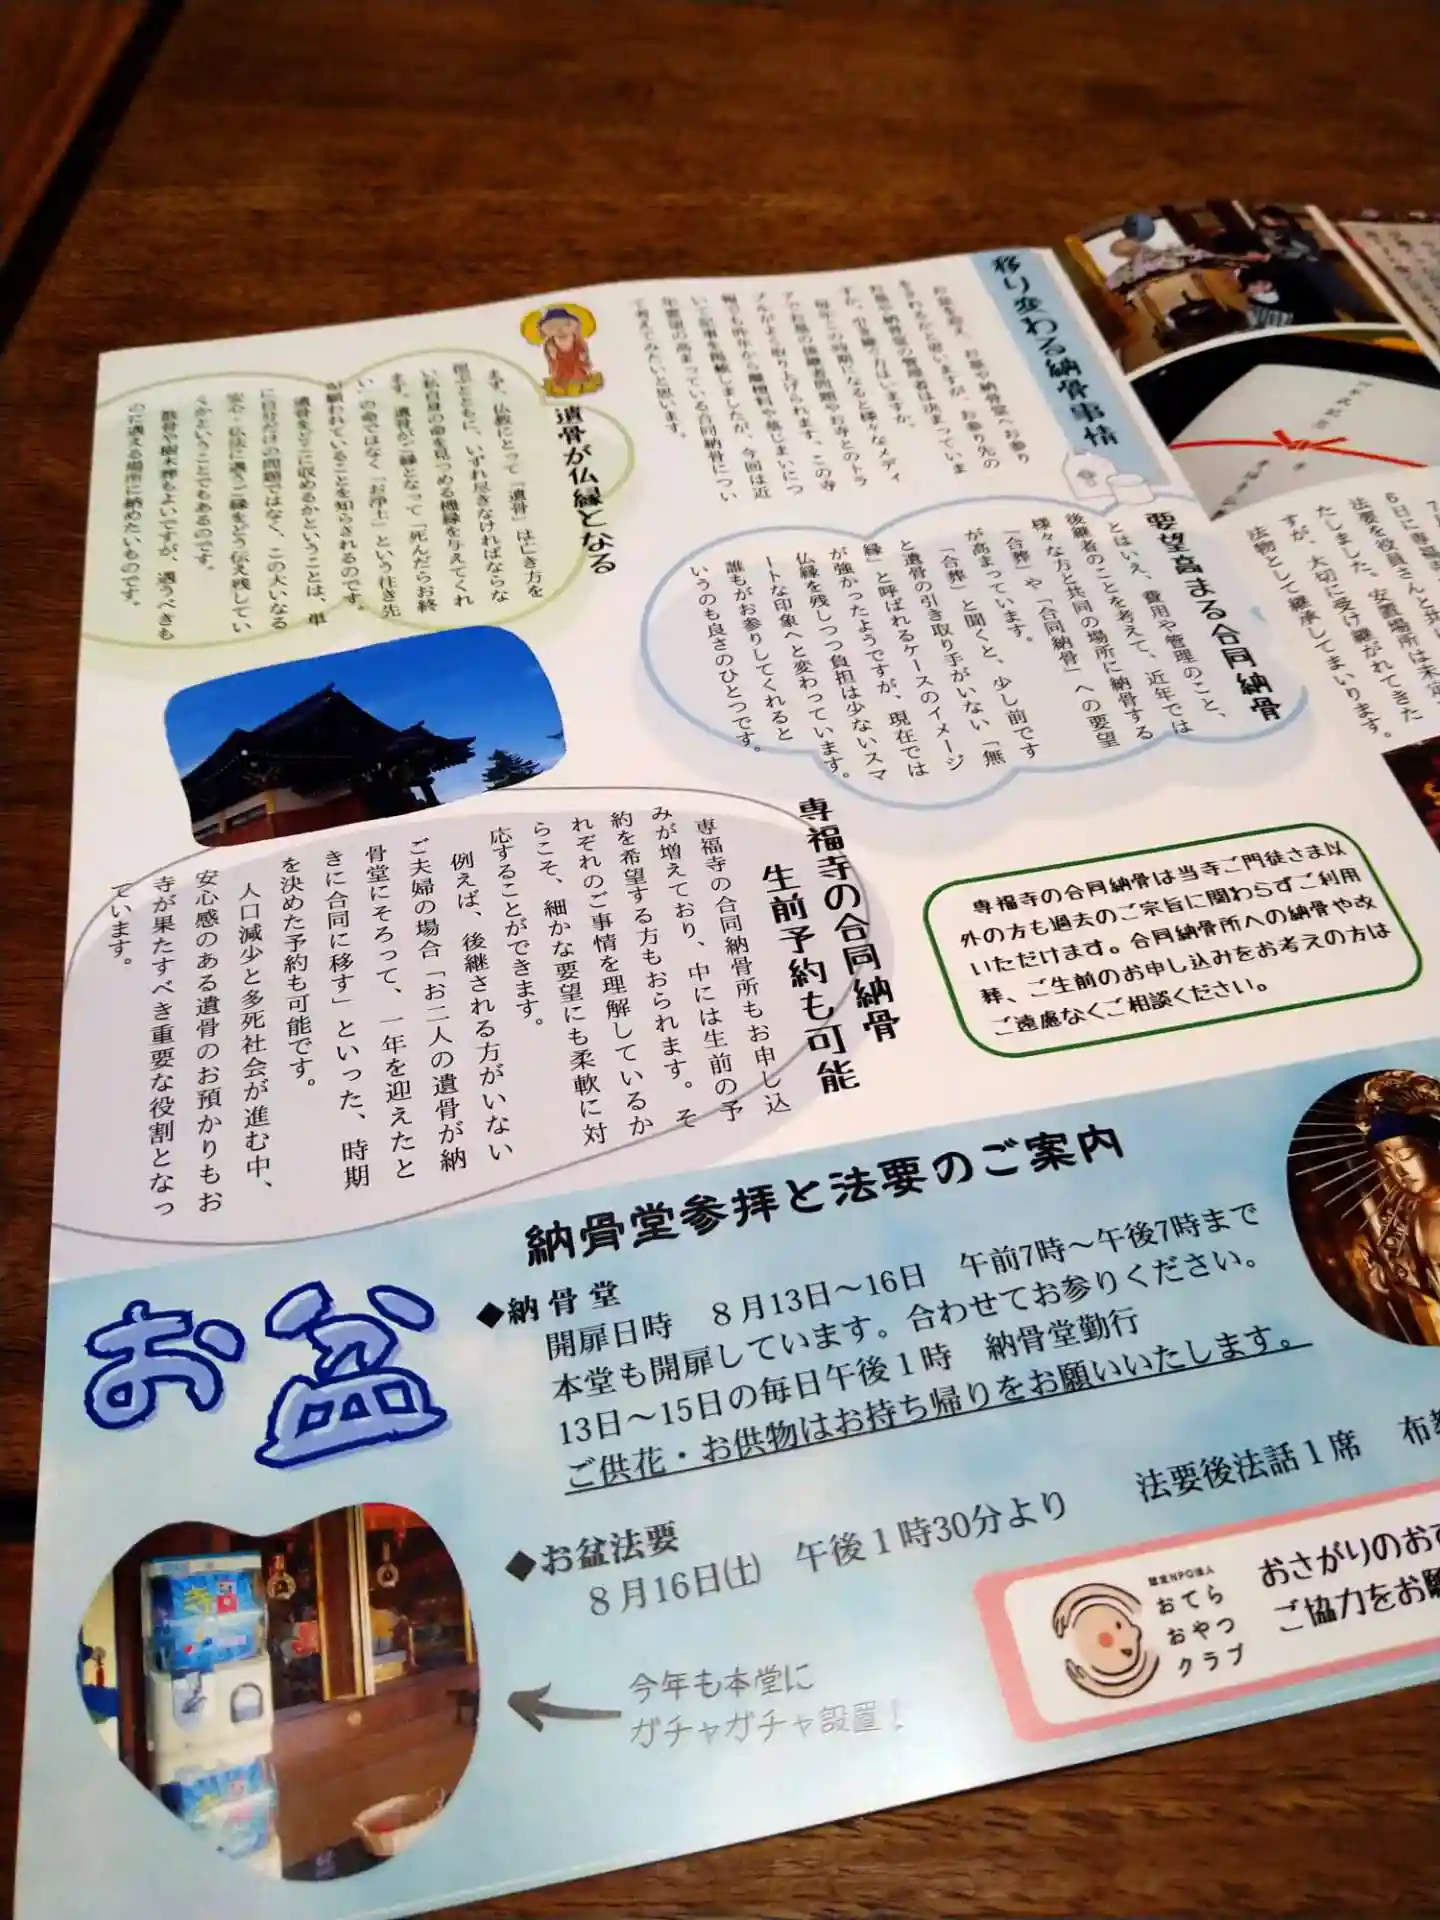 移り変わる納骨事情
お盆を迎え、お墓や納骨堂へお参り
をされるかと思いますが、お参り先の
お墓や納骨堂の管理者は決まっていま
すか。引き継ぐ方はいますか。
毎年この時期になると様々なメディ
アでお墓の後継者問題やお寺とのトラ
ブルがよく取り上げられます。この寺
報でも昨年から離檀料や墓じまいにつ
いて記事を掲載しましたが、今回は近
年要望の高まっている合同納骨につい
て考えてみたいと思います。
要望高まる合同納骨
とはいえ、費用や管理のこと、
後継者のことを考えて、近年では
様々な方と共同の場所に納骨する
「合葬」や「合同納骨」への要望
が高まっています。
「合葬」と聞くと、少し前です
と遺骨の引き取り手がいない「無
縁」と呼ばれるケースのイメージ
が強かったようですが、現在では
仏縁を残しつつ負担は少ないスマ
ートな印象へと変わっています。
誰もがお参りしてくれると
いうのも良さのひとつです。
遺骨が仏縁となる
まず、仏教にとって「遺骨」は亡き方を
偲ぶとともに、いずれ尽きなければならな
い私自身の命を見つめる機縁を与えてくれ
ます。遺骨がご縁となって「死んだらお終
い」の命ではなく「お浄土」という往き先
が願われていることを知らされるのです。
遺骨をどこに収めるかということは、単
に自分だけの問題ではなく、この大いなる
安心・仏法に遇うご縁をどう伝え残してい
くかということでもあるのです。
散骨や樹木葬もよいですが、遇うべきも
のに遇える場所に納めたいものです。
専福寺の合同納骨
生前予約も可能
専福寺の合同納骨所もお申し込
みが増えており、中には生前の予
約を希望する方もおられます。そ
れぞれのご事情を理解しているか
らこそ、細かな要望にも柔軟に対
応することができます。
例えば、後継される方がいない
ご夫婦の場合「お二人の遺骨が納
骨堂にそろって、一年を迎えたと
きに合同に移す」といった、時期
を決めた予約も可能です。
人口減少と多死社会が進む中、
安心感のある遺骨のお預かりもお
寺が果たすべき重要な役割となっ
ています。
専福寺の合同納骨は当寺ご門徒さま以
外の方も過去のご宗旨に関わらずご利用
いただけます。合同納骨所への納骨や改
葬、ご生前のお申し込みをお考えの方は
ご遠慮なくご相談ください。
6日に専福寺
法要を役員さんと共
たしました。安置場所は未定
すが、大切に受け継がれてきた
法物として継承してまいります。
お盆
納骨堂参拝と法要のご案内
◆納骨堂
開扉日時 8月13日～16日 午前7時～午後7時まで
本堂も開扉しています。合わせてお参りください。
13日～15日の毎日午後1時 納骨堂勤行
ご供花・お供物はお持ち帰りをお願いいたします。
◆お盆法要
8月16日(土) 午後1時30分より 法要後法話1席 布教
今年も本堂に
ガチャガチャ設置！
認定NPO法人
おてら
おやつ
クラブ
おさがりのお
ご協力をお願